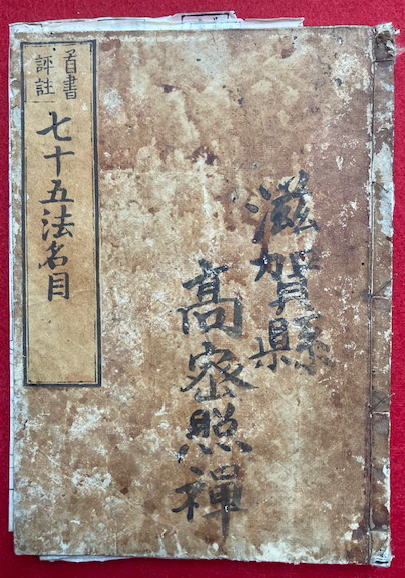 滋賀縣
高密照禪
首書
評註
七十五法名目